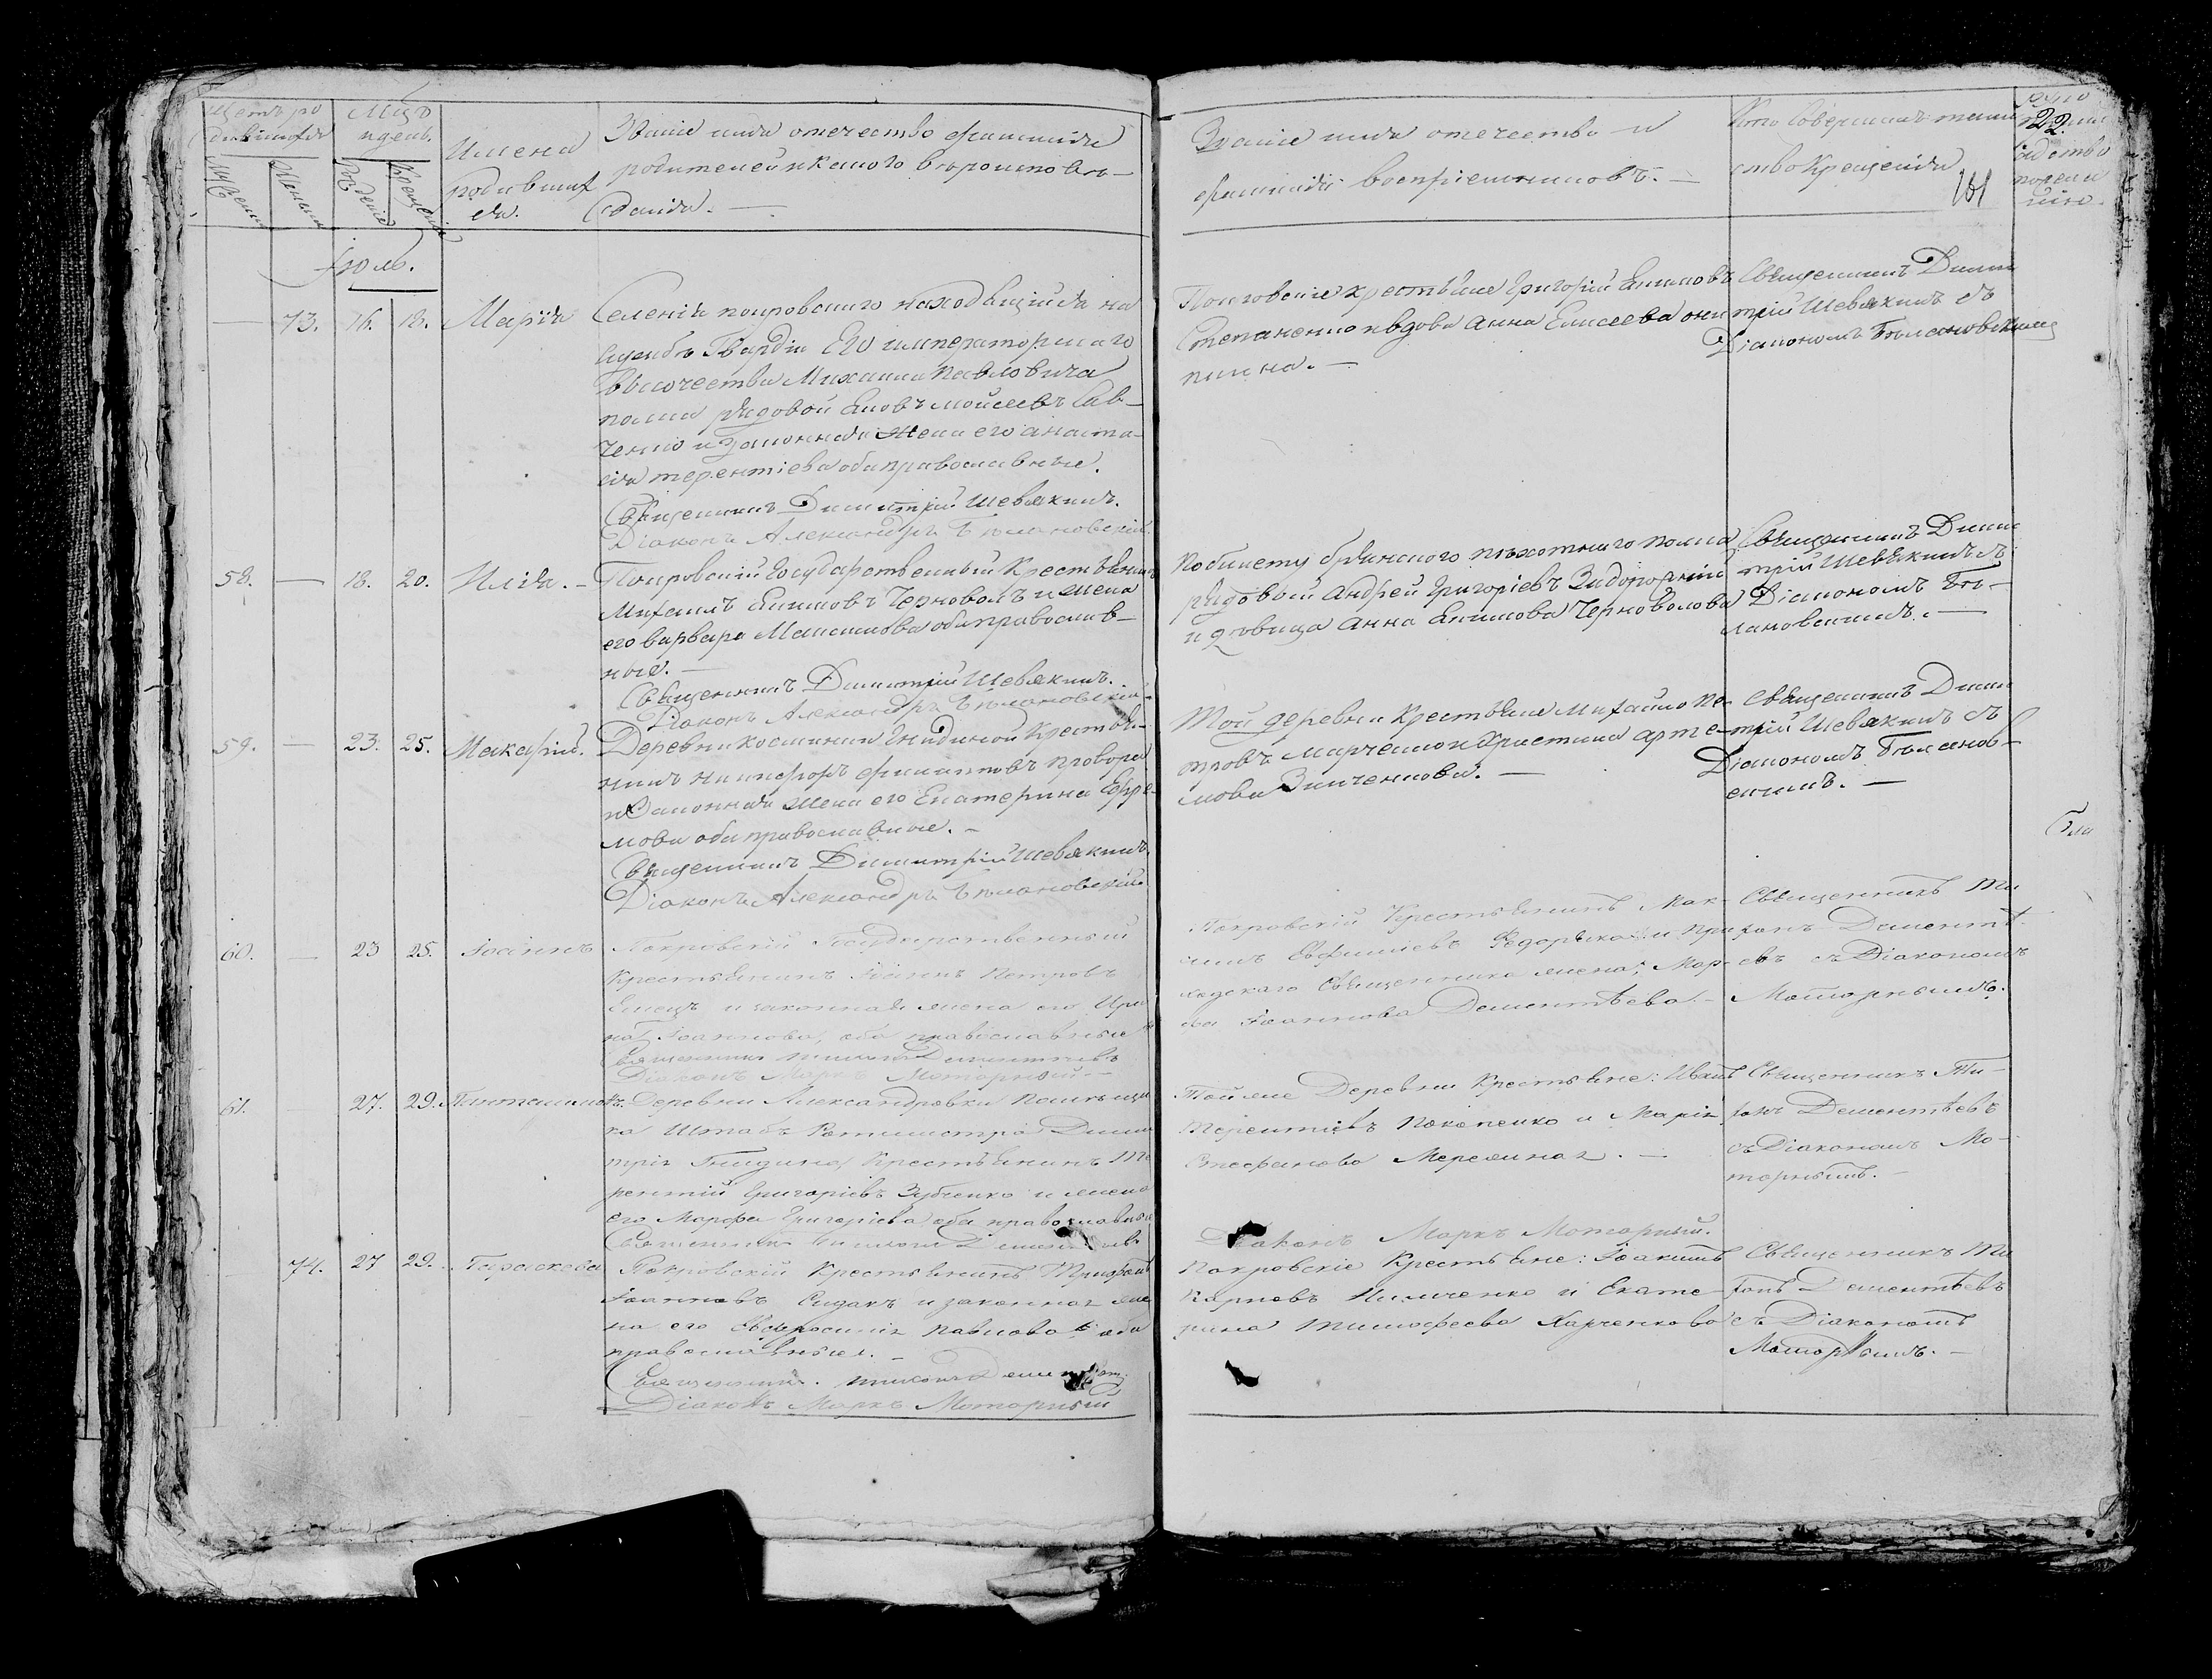 Щетъ ро
дившихся
Мѣц
и день.
Имена
родивших
ся.
Званіе имя отечество фамилія
родителей и какого вѣроисповѣ—
данія. —
Званіе имя отечество и
фамилія воспріемниковъ. —
Кто совершалъ таин
ство крещенія
22.
161
Іюль.
73. 16. 18. Марія
Селенія покровскаго находящійся на
службѣ Гвардіи Его императорскаго
Высочества Михаила Павловича
полка рядовой Яковъ Мойсеевъ Сав—
ченко и законная жена его Анаста—
сія терентіева оба православные.
Священникъ Димитрій Шевякинъ.
Діаконъ Александръ Бѣлановскій
Покровскіе крестьяне Григорій Екимовъ
Степаненко и вдова Анна Елисеева
Священникъ Дими
трій Шевякинъ съ
Діакономъ Бѣлановскимъ
58. — 18. 20. Илія. —
Покровскій Государственный Крестьянинъ
Михаилъ Екимовъ Черноволъ и жена
его варвара Максимова оба православ—
ные. —
Священникъ Димитрій Шевякинъ.
Діаконъ Александръ Бѣлановскій
по билету брянского пѣхотнаго полка
рядовой Андрей Григоріевъ Задорожній
и вдовица Анна Екимова Черноволова
Священникъ Дими
трій Шевякинъ съ
Діакономъ Бѣ—
лановскимъ. —
59. — 23. 25. Макарій.
Деревни косминки Гнидиной Крестья—
нинъ никифоръ филиповъ провора
и Законная жена его Екатерина Ефре—
мова оба православные. —
Священникъ Димитрій Шевякинъ.
Діаконъ Александръ Бѣлановскій
Той деревни Крестьяне Михайло Пе—
тровъ Марченко и Христина арте—
мова Зинченкова. —
Священникъ Дими
трій Шевякинъ съ
Діакономъ Бѣланов—
скимъ. —
60. — 23 25. Іоаннъ
Покровскій Государственный
Крестьянинъ Іоаннъ Петровъ
Емецъ и законная жена его Ири
на Іоаннова, оба православные
Священникъ Тихонъ Дементьевъ
Діаконъ Маркъ Моторный. —
Покровскій Крестьянинъ Мак—
симъ Евфиміевъ Федорька и при
ходскаго Священника жена, Мар—
ѳа Іоаннова Дементьева. —
Священникъ Ти
хонъ Дементь
евъ съ Діакономъ
Моторнымъ.
61. — 27. 29. Пантелимонъ.
Деревни Александровки помѣщи
ка Штабъ Ротмистра Дими
трія Гнидина, Крестьянинъ Те
рентій Григоріевъ Зубченко и жена
его Марфа Григоріева оба православные
Священникъ
Той же Деревни Крестьяне: Иванъ
Терентіевъ Покопенко и Марія
Стефанова Мережиная. —
Священникъ Ти—
хонъ Дементьевъ
съ Діакономъ Мо—
торнымъ. —
Діаконъ Маркъ Моторный.
74. 27 29. Параскева
Покровскій Крестьянинъ Трифонъ
Іоанновъ Сидакъ и законная же
на его Евфросинія Павлова оба
православные. —
Священникъ
Діаконъ Маркъ Моторный
Покровскіе Крестьяне: Іоакимъ
Карповъ и Екате—
рина Тимофеева Харченкова
Священникъ Ти
хонъ Дементьевъ
съ Діакономъ
Моторнымъ. —